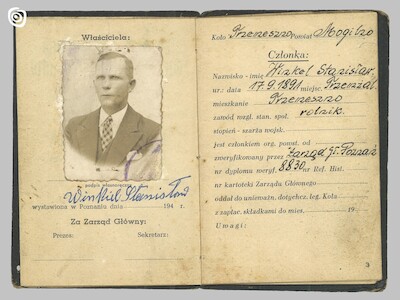 Właściciela:
podpis własnoręczny
Winkel Stanisław
wystawiona w Poznaniu dnia 194 r.
Za Zarząd Główny:
Prezes: Sekretarz:
Koło Trzeneszno Powiat Mogilno
Członka:
Nazwisko - imię Winkel Stanisław
ur.: data 17.9.1891 miejsc.
mieszkanie Trzeneszno
zawód wzgl. stan. społ. rolnik.
stopień - szarża wojsk.
jest członkiem org. powst. od
zweryfikowany przez Zarząd Gł. Poznań
nr dyplomu weryf. 8830 nr Ref. Hist.
nr kartoteki Zarządu Głównego
oddał do unieważn. dotychcz. leg. Koła
z zapłac. składkami do mies. 19
Uwagi:
3